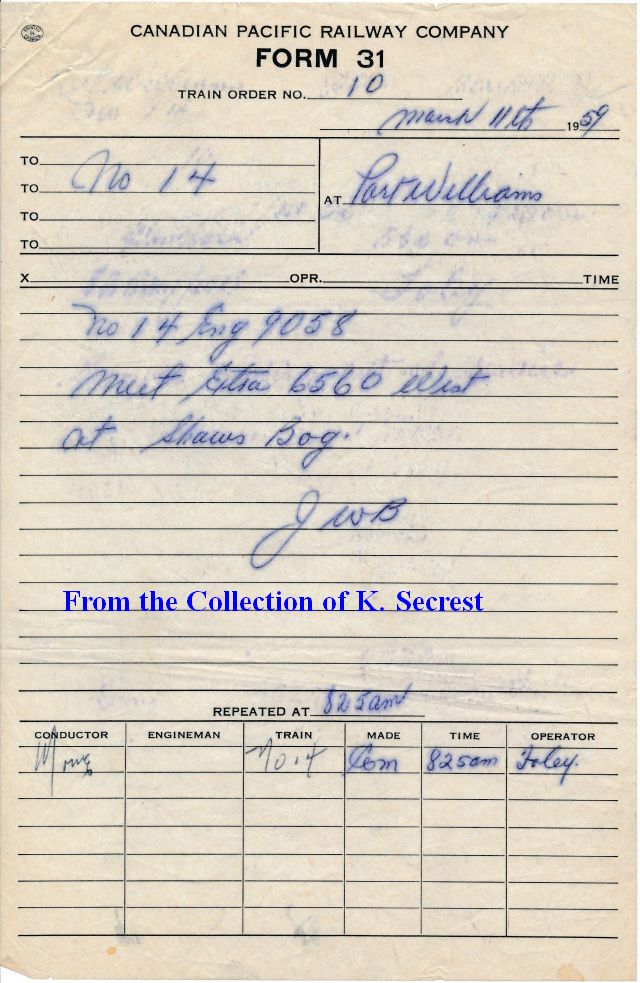 PRINTED IN CANADA
CANADIAN PACIFIC RAILWAY COMPANY
FORM 31
TRAIN ORDER NO. 10
March 11th 1959
TO
TO No 14
TO
TO
AT Port Williams
X OPR. TIME
No 14 Eng 9058
Meet Extra 6560 West
at Shaws Bog.
JWB
From the Collection of K. Secrest
REPEATED AT 825am
CONDUCTOR ENGINEMAN TRAIN MADE TIME OPERATOR
No. 14 Com 825am Foley.